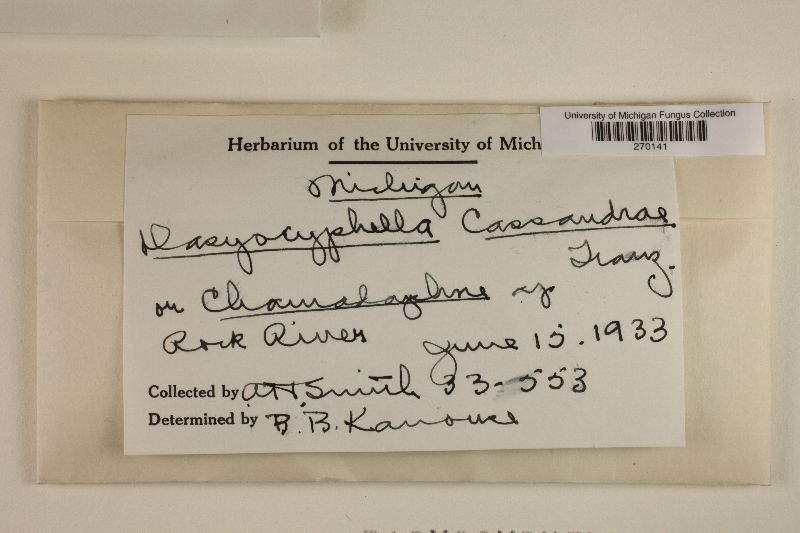 University of Michigan Fungus Collection
270141
Herbarium of the University of Mich
Michigan
Dasyocyphella Cassandrae
Tranz.
on Chamadaphne
Rock River June 15. 1933
Collected by A.H. Smith 33-553
Determined by B. B. Kanouse